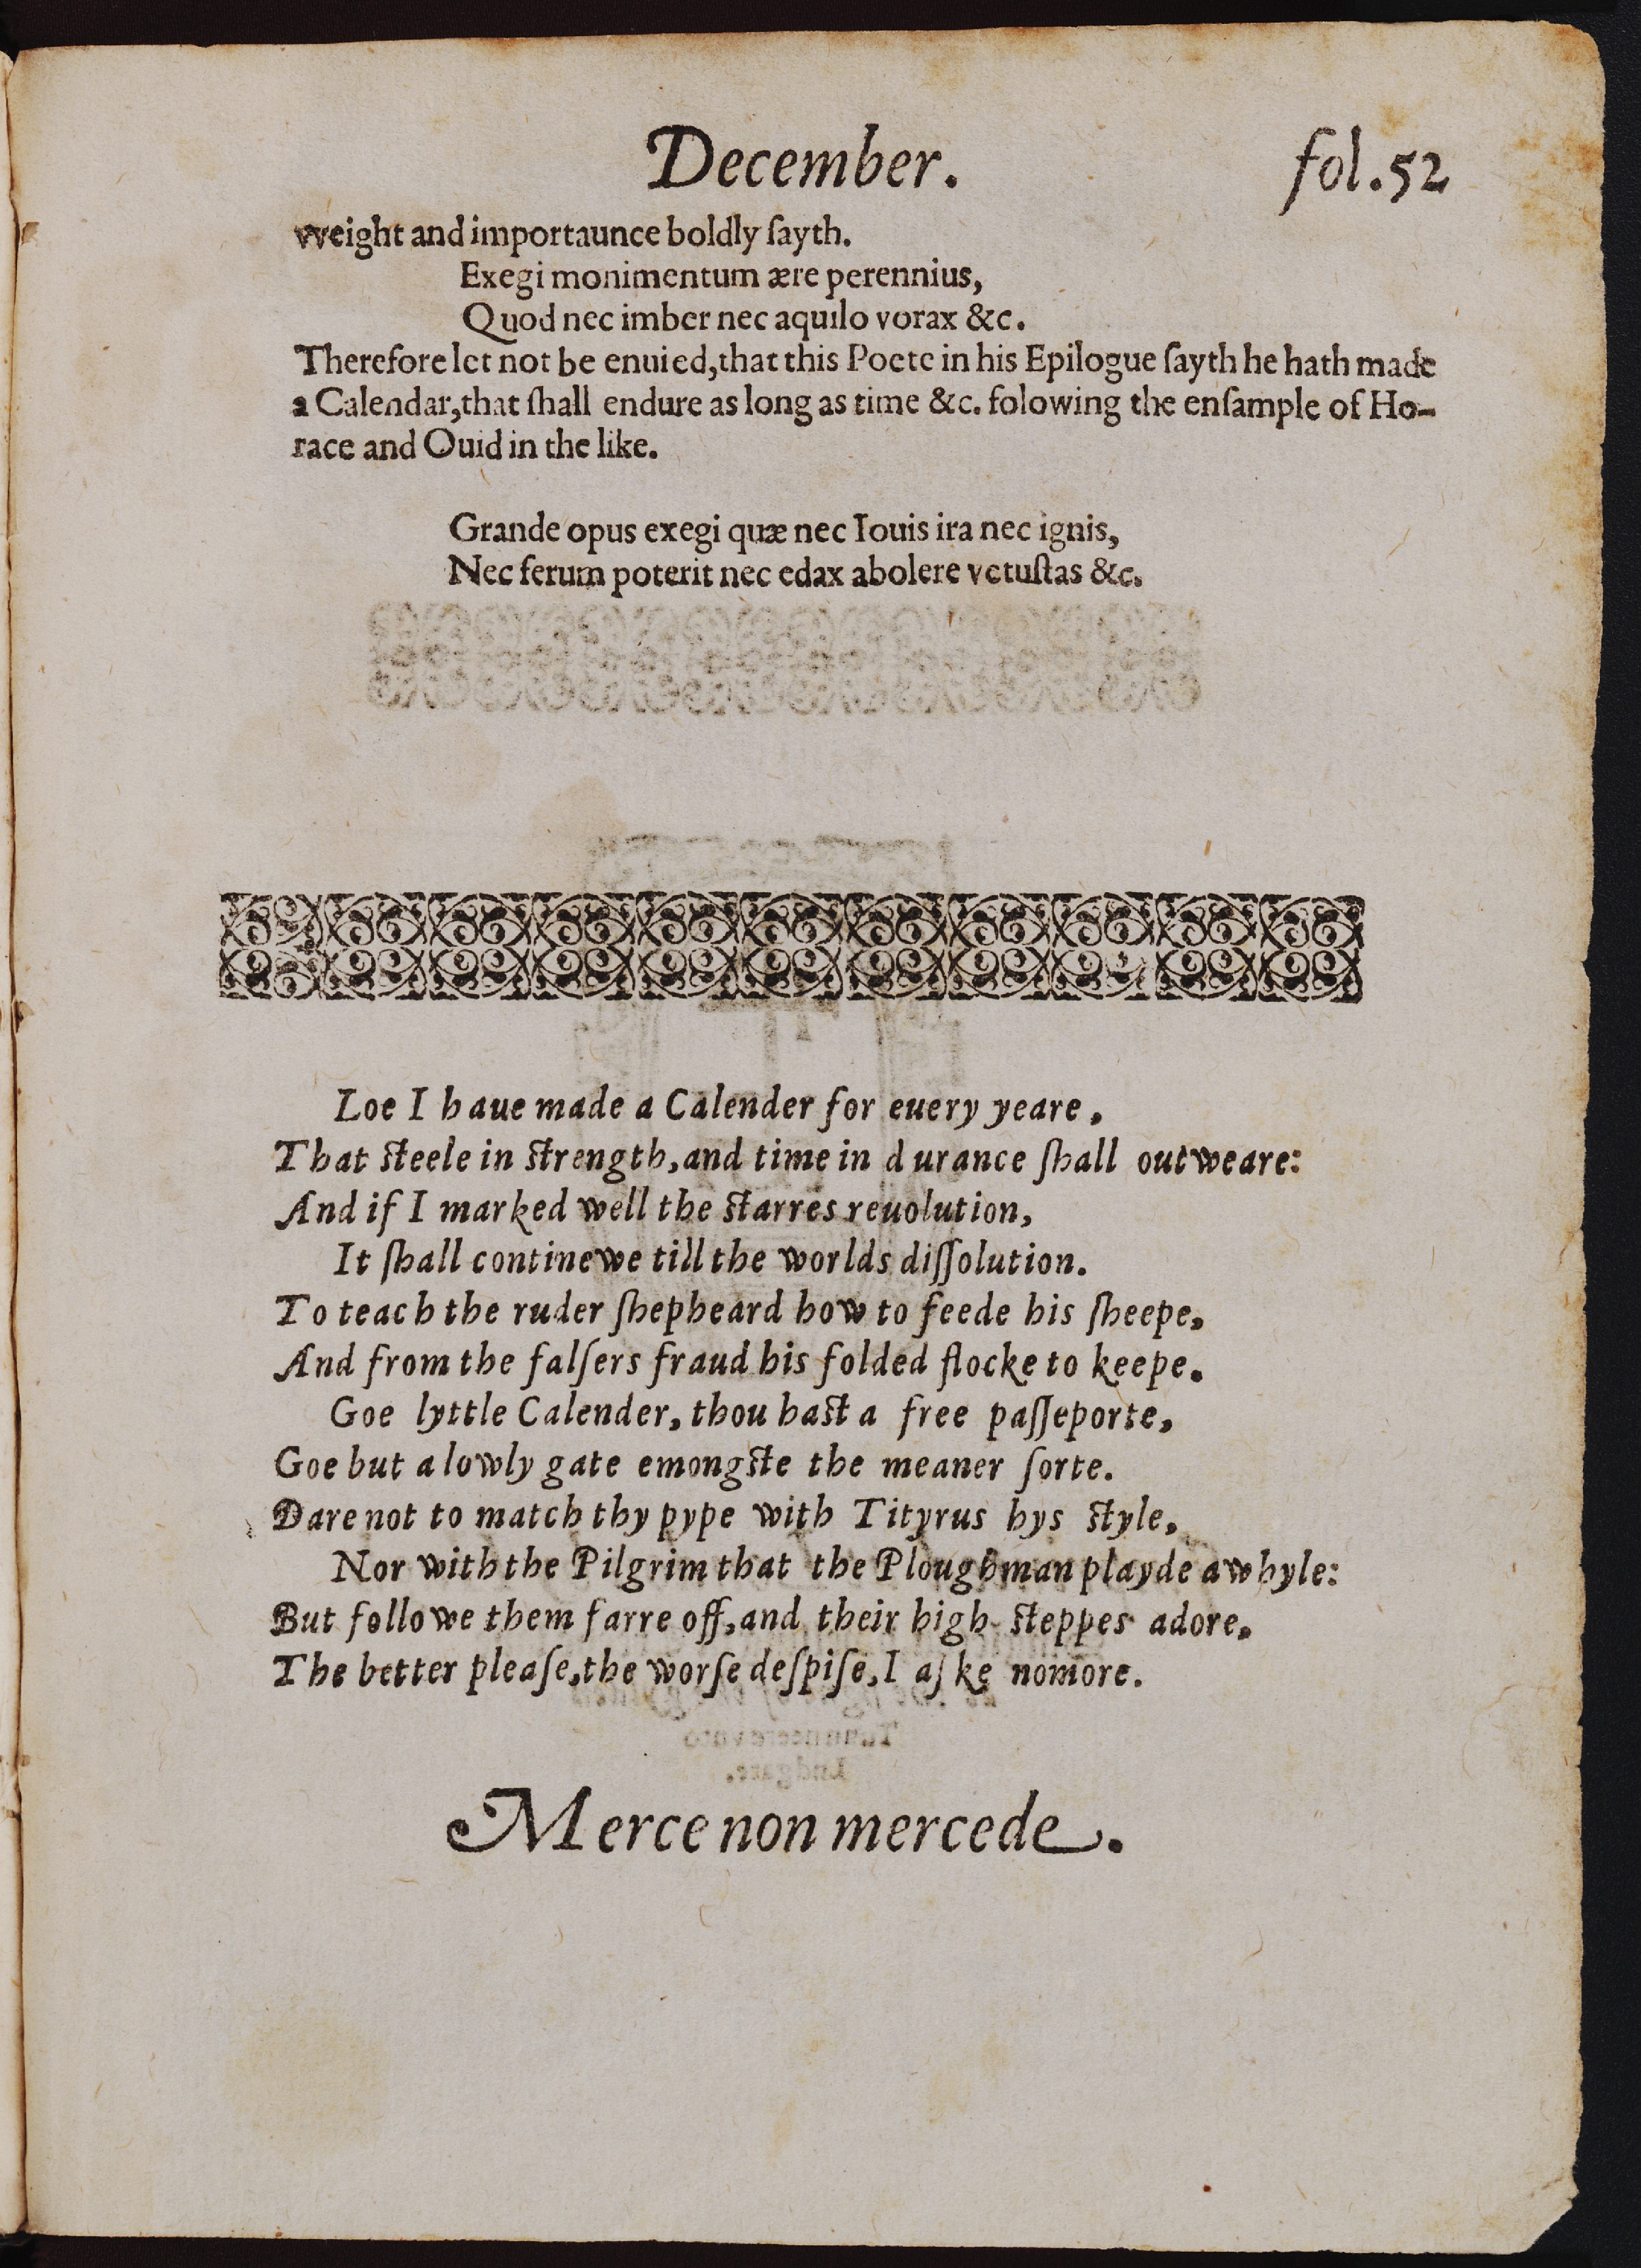 December. fol.52
vveight and importaunce boldly ſayth.
Exegi monimentum ære perennius,
Quod nec imber nec aquilo vorax &c.
Therefore let not be enuied,that this Poete in his Epilogue ſayth he hath made
a Calendar,that ſhall endure as long as time &c. folowing the enſample of Ho-
race and Ouid in the like.
Grande opus exegi quæ nec Iouis ira nec ignis,
Nec ferum poterit nec edax abolere vetuſtas &c.
Loe I haue made a Calender for euery yeare,
That ſteele in ſtrength,and time in durance ſhall outweare:
And if I marked well the ſtarres reuolution,
It ſhall continewe till the worlds diſſolution.
To teach the ruder ſhepheard how to feede his ſheepe,
And from the falſers fraud his folded flocke to keepe.
Goe lyttle Calender, thou haſt a free paſſeporte,
Goe but a lowly gate emongſte the meaner ſorte.
Dare not to match thy pype with Tityrus hys ſtyle,
Nor with the Pilgrim that the Ploughman playde awhyle:
But followe them farre off,and their high ſteppes adore,
The better pleaſe,the worſe deſpiſe,I aſke nomore.
Merce non mercede.